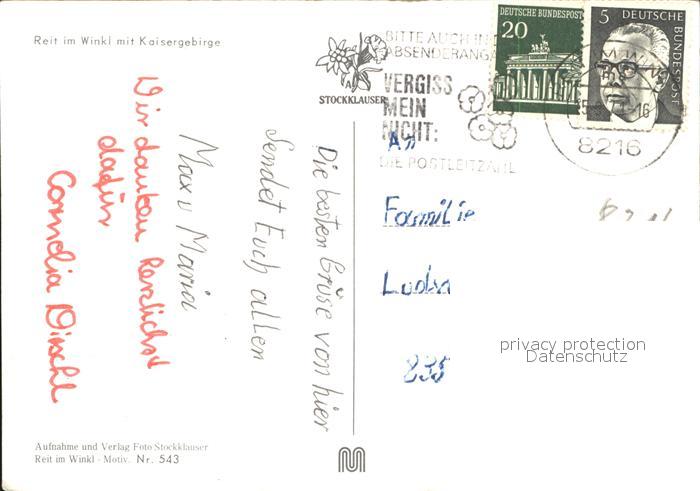 Reit im Winkl mit Kaisergebirge
STOCKKLAUSER
BITTE AUCH IN
ABSENDERANGA
VERGISS
MEIN
NICHT:
DIE POSTLEITZAHL
DEUTSCHE BUNDESPOST
20
5 DEUTSCHE
BUNDESPOST
8216
Die besten Grüse von hier
Sendet Euch allen
Max u Maria
Wir danken herzlichst
dafür
Cornelia
An
Familie
835
privacy protection
Datenschutz
Aufnahme und Verlag Foto Stockklauser
Reit im Winkl - Motiv. Nr. 543